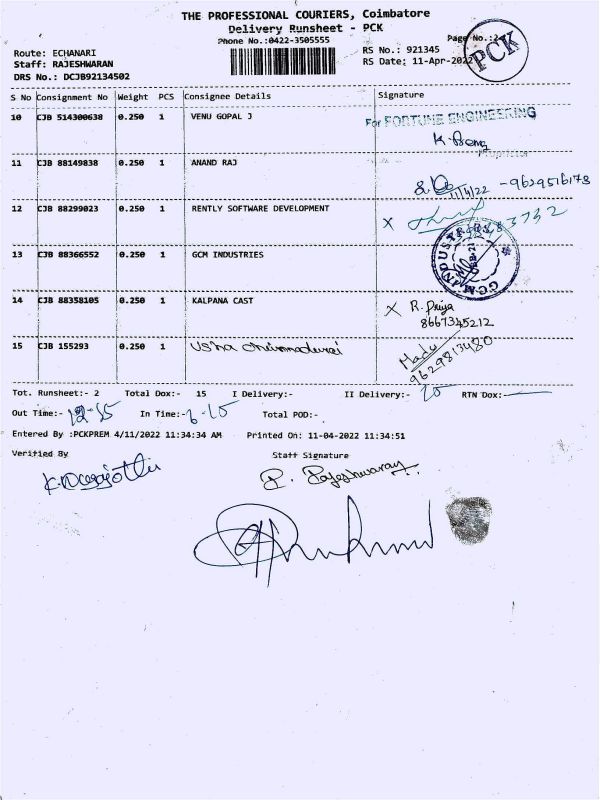 THE PROFESSIONAL COURIERS, Coimbatore
Delivery Runsheet - PCK
Phone No.:0422-3505555
Page No.:2
PCK
Route: ECHANARI
Staff: RAJESHWARAN
DRS No.: DCJB92134502
RS No.: 921345
RS Date: 11-Apr-2022
S No Consignment No Weight PCS Consignee Details Signature
10 CJB 514300638 0.250 1 VENU GOPAL J
For FORTUNE ENGINEERING
Proprietor
11 CJB 88149838 0.250 1 ANAND RAJ
11/4/22 -9629516178
12 CJB 88299023 0.250 1 RENTLY SOFTWARE DEVELOPMENT
X
13 CJB 88366552 0.250 1 GCM INDUSTRIES
GCM INDUSTRIES
14 CJB 88358105 0.250 1 KALPANA CAST
X R. Priya
8667345212
15 CJB 155293 0.250 1 Usha Chinnadurai
Madu
9629813480
Tot. Runsheet:- 2 Total Dox:- 15 I Delivery:- II Delivery:- RTN Dox:-
Out Time:- 12-15 In Time:- 6-15 Total POD:-
Entered By :PCKPREM 4/11/2022 11:34:34 AM Printed On: 11-04-2022 11:34:51
Verified By Staff Signature
P. Rajeshwaran